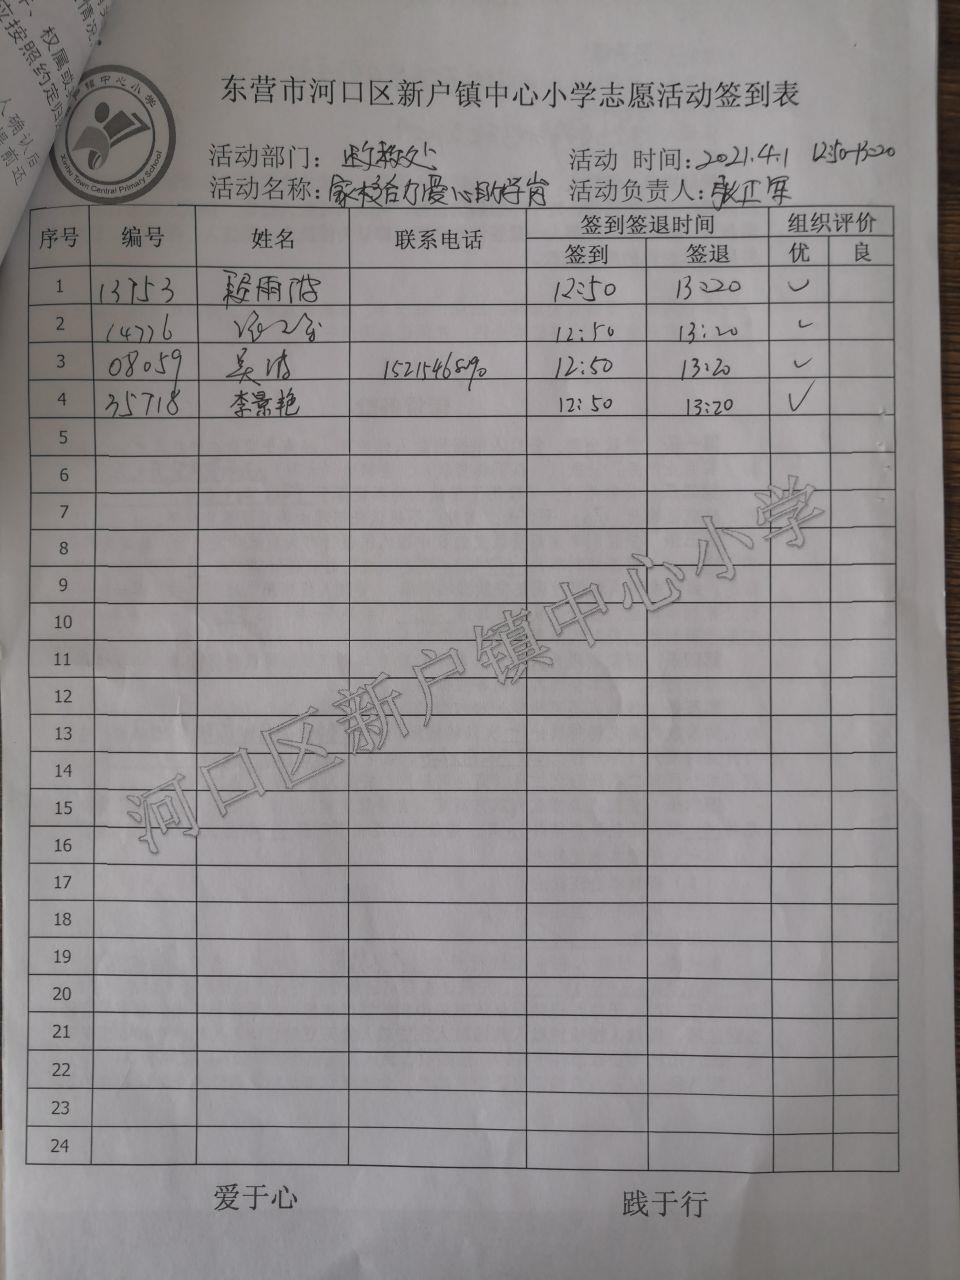 情况。
、权属或
应按照约定归
人确认后
提前还
镇中心小学
Xinhu Town Central Primary School
东营市河口区新户镇中心小学志愿活动签到表
活动部门: 政教处 活动 时间: 2021.4.1 12:50-13:20
活动名称: 家校合力爱心助学岗 活动负责人:
序号 编号 姓名 联系电话 签到签退时间 组织评价
签到 签退 优 良
1 13753 12:50 13:20 ✓
2 14776 12:50 13:20 ✓
3 08059 吴涛 12:50 13:20 ✓
4 35718 李景艳 12:50 13:20 ✓
5
6
7
8
9
10
11
12
13
14
15
16
17
18
19
20
21
22
23
24
河口区新户镇中心小学
爱于心 践于行